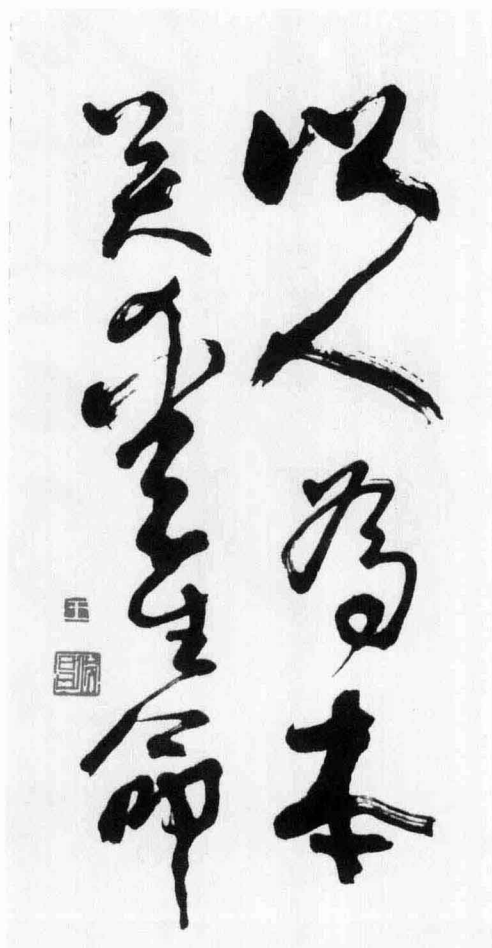 以人為本
关爱生命